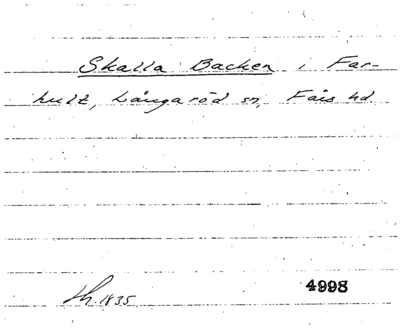 Skalla Backen i Far-
hult, Långaröd sn, Färs hd.
Th. 1835
4998